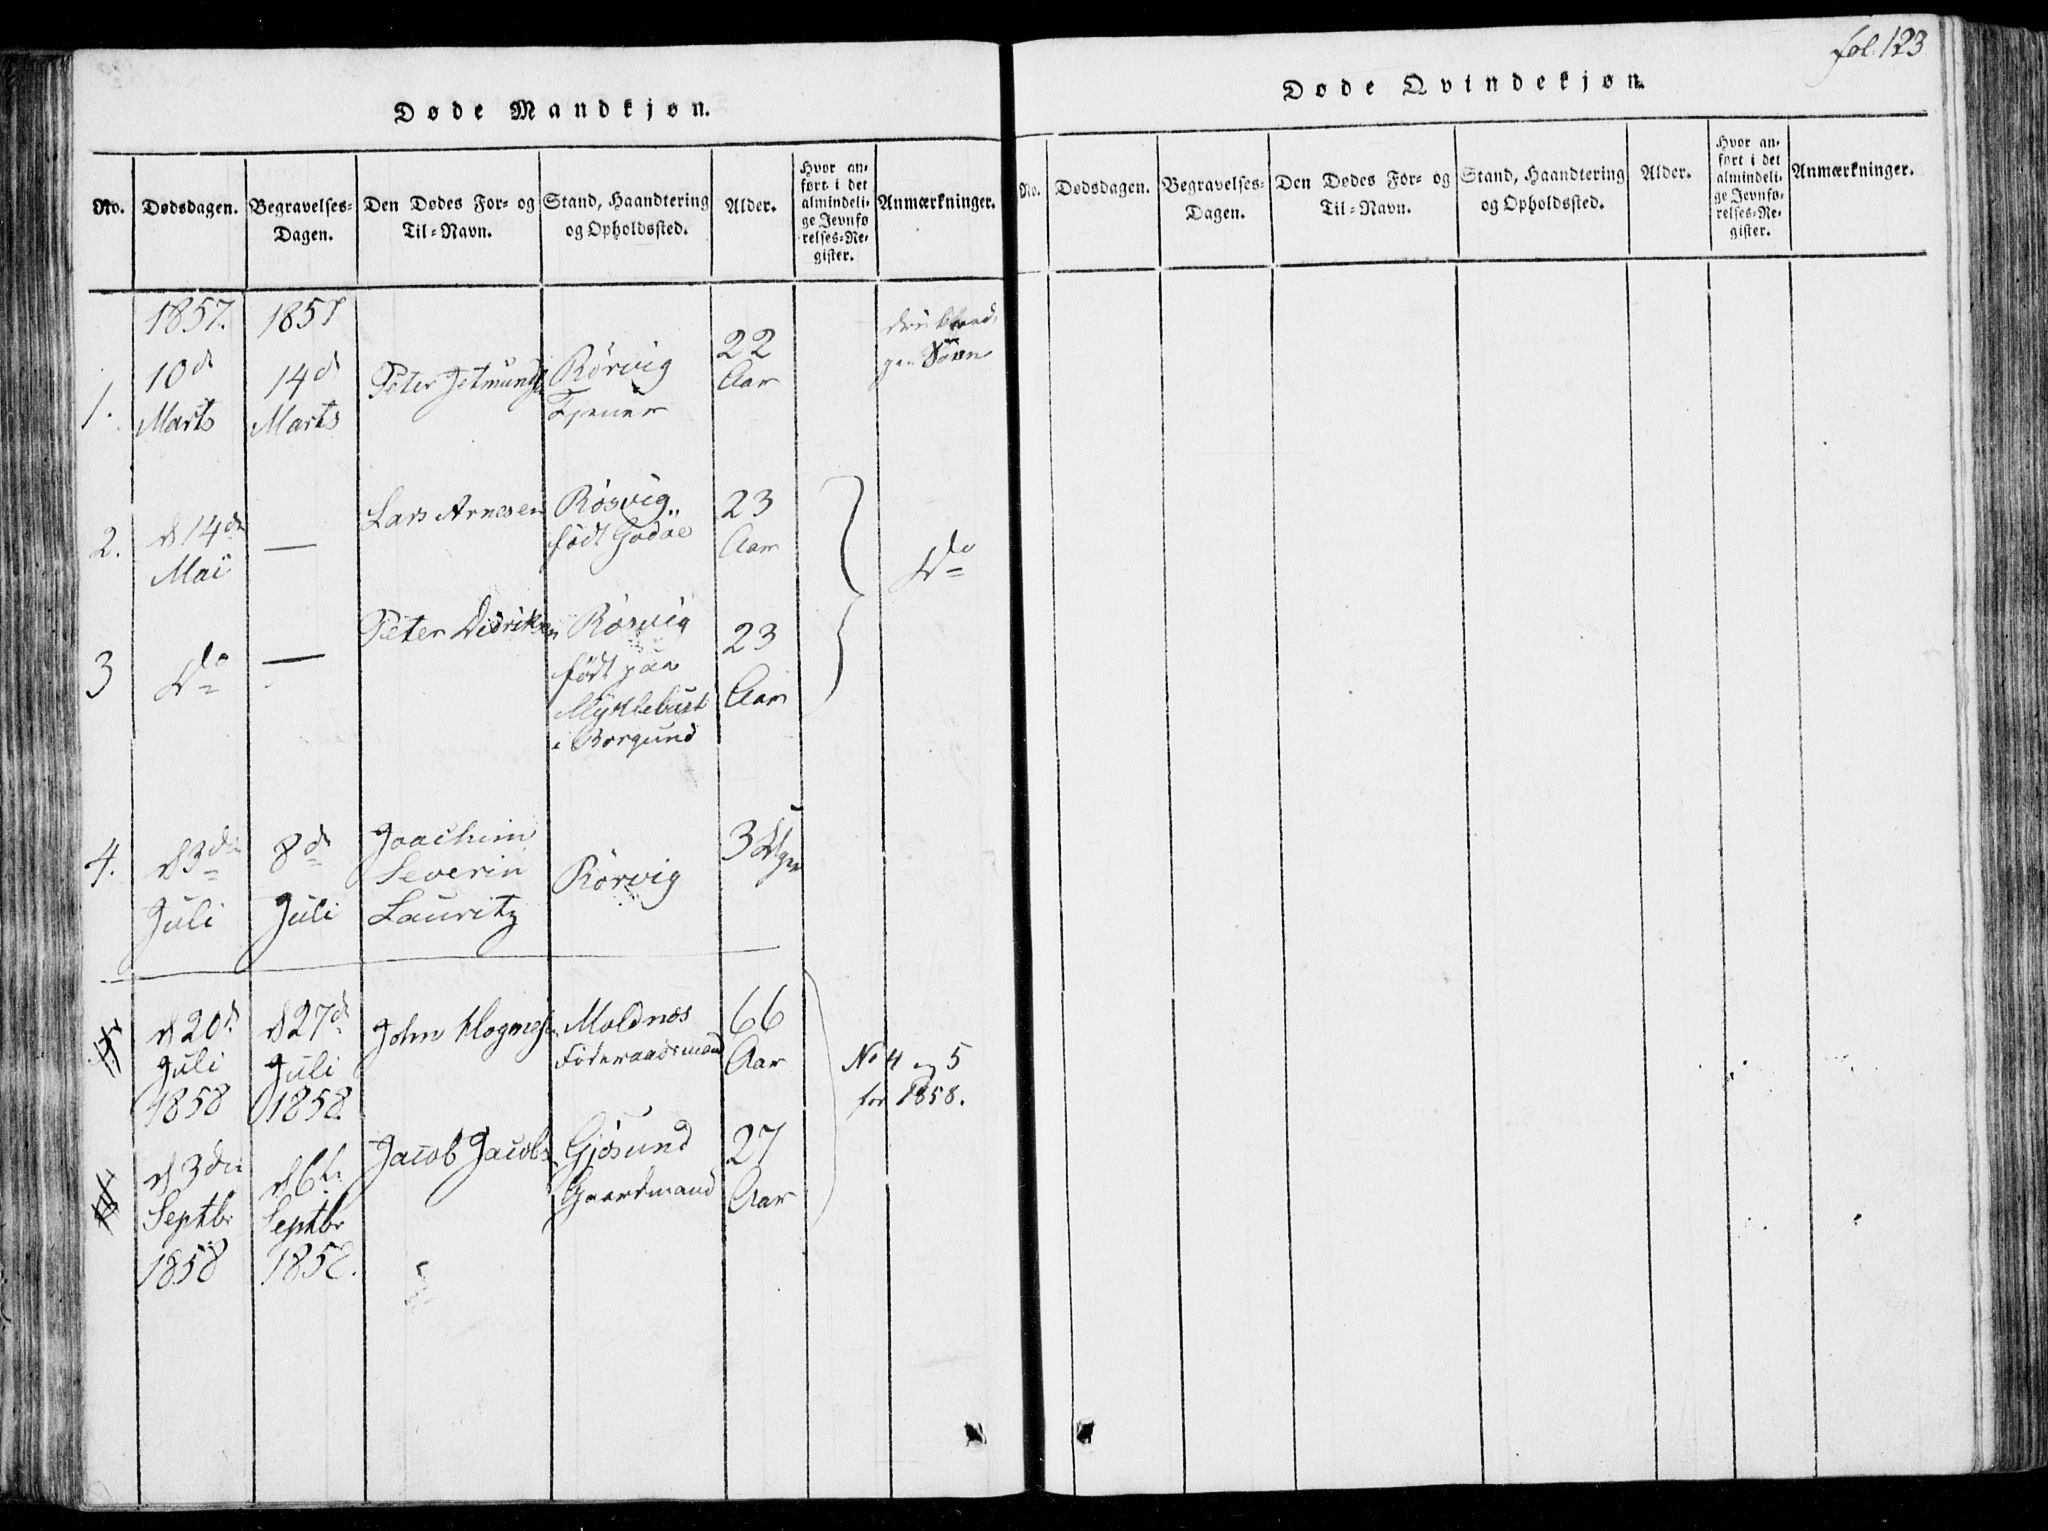 fol. 123
Døde Mandkjøn.
No.
Dødsdagen.
Begravelses-
Dagen.
Den Dødes For- og
Til-Navn.
Stand, Haandtering
og Opholdssted.
Alder.
Hvor an-
ført i det
almindeli-
ge Jevnfø
relses-Re-
gister.
Anmærkninger.
1.
1857.
10d
Marts
1857
14d
Marts
Peter Jetmunds
Rörvig
Tjener
22
Aar
2.
d 14de
Mai
—
Lars Arnesen
Rörvig
födt Godöe
23
Aar
Do
3
Do
—
Peter Didriksen
Rörvig
födt paa
Myklebust
i Borgund
23
Aar
4.
d 3die
Juli
8d
Juli
Joachim
Severin
Lauritz
Rörvig
3
d 20d
Juli
1858
d 27d
Juli
1858.
John Mognes
Moldnæs
Föderaadsmand
66
Aar
No 4 og 5
for 1858.
d 3die
Septbr
1858
d 6te
Septbr
1858.
Jacob Jacobs
Gjösund
Gaardmand
27
Aar
Døde Qvindekjøn.
No.
Dødsdagen.
Begravelses-
Dagen.
Den Dødes For- og
Til-Navn.
Stand, Haandtering
og Opholdssted.
Alder.
Hvor an-
ført i det
almindeli-
ge Jevnfø-
relses-Re-
gister.
Anmærkninger.